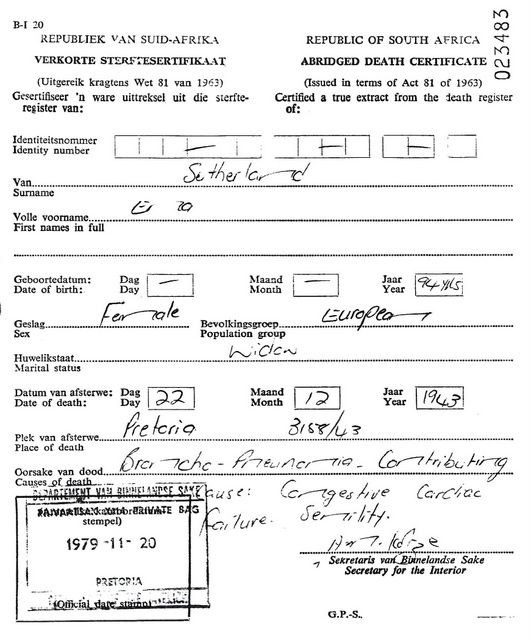 B-I 20
023483
REPUBLIEK VAN SUID-AFRIKA
REPUBLIC OF SOUTH AFRICA
VERKORTE STERFTESERTIFIKAAT
ABRIDGED DEATH CERTIFICATE
(Uitgereik kragtens Wet 81 van 1963)
(Issued in terms of Act 81 of 1963)
Gesertifiseer 'n ware uittreksel uit die sterfte-
register van:
Certified a true extract from the death register
of:
Identiteitsnommer
Identity number
Van Sutherland
Surname
Volle voorname
First names in full
Geboortedatum: Dag — Maand — Jaar 94 yrs
Date of birth: Day Month Year
Geslag Female Bevolkingsgroep European
Sex Population group
Huwelikstaat Widow
Marital status
Datum van afsterwe: Dag 22 Maand 12 Jaar 1943
Date of death: Day Month Year
Plek van afsterwe Pretoria 3158/43
Place of death
Oorsake van dood Broncho-Pneumonia. Contributing
Causes of death
cause: Congestive Cardiac
Failure. Senility.
DEPARTEMENT VAN BINNELANDSE SAKE
PRIVAATSAK PRIVATE BAG
stempel)
1979 -11- 20
PRETORIA
(Official date stamp)
Sekretaris van Binnelandse Sake
Secretary for the Interior
G.P.-S.